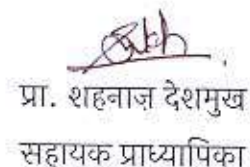 प्रा. शहनाज़ देशमुख
सहायक प्राध्यापिका